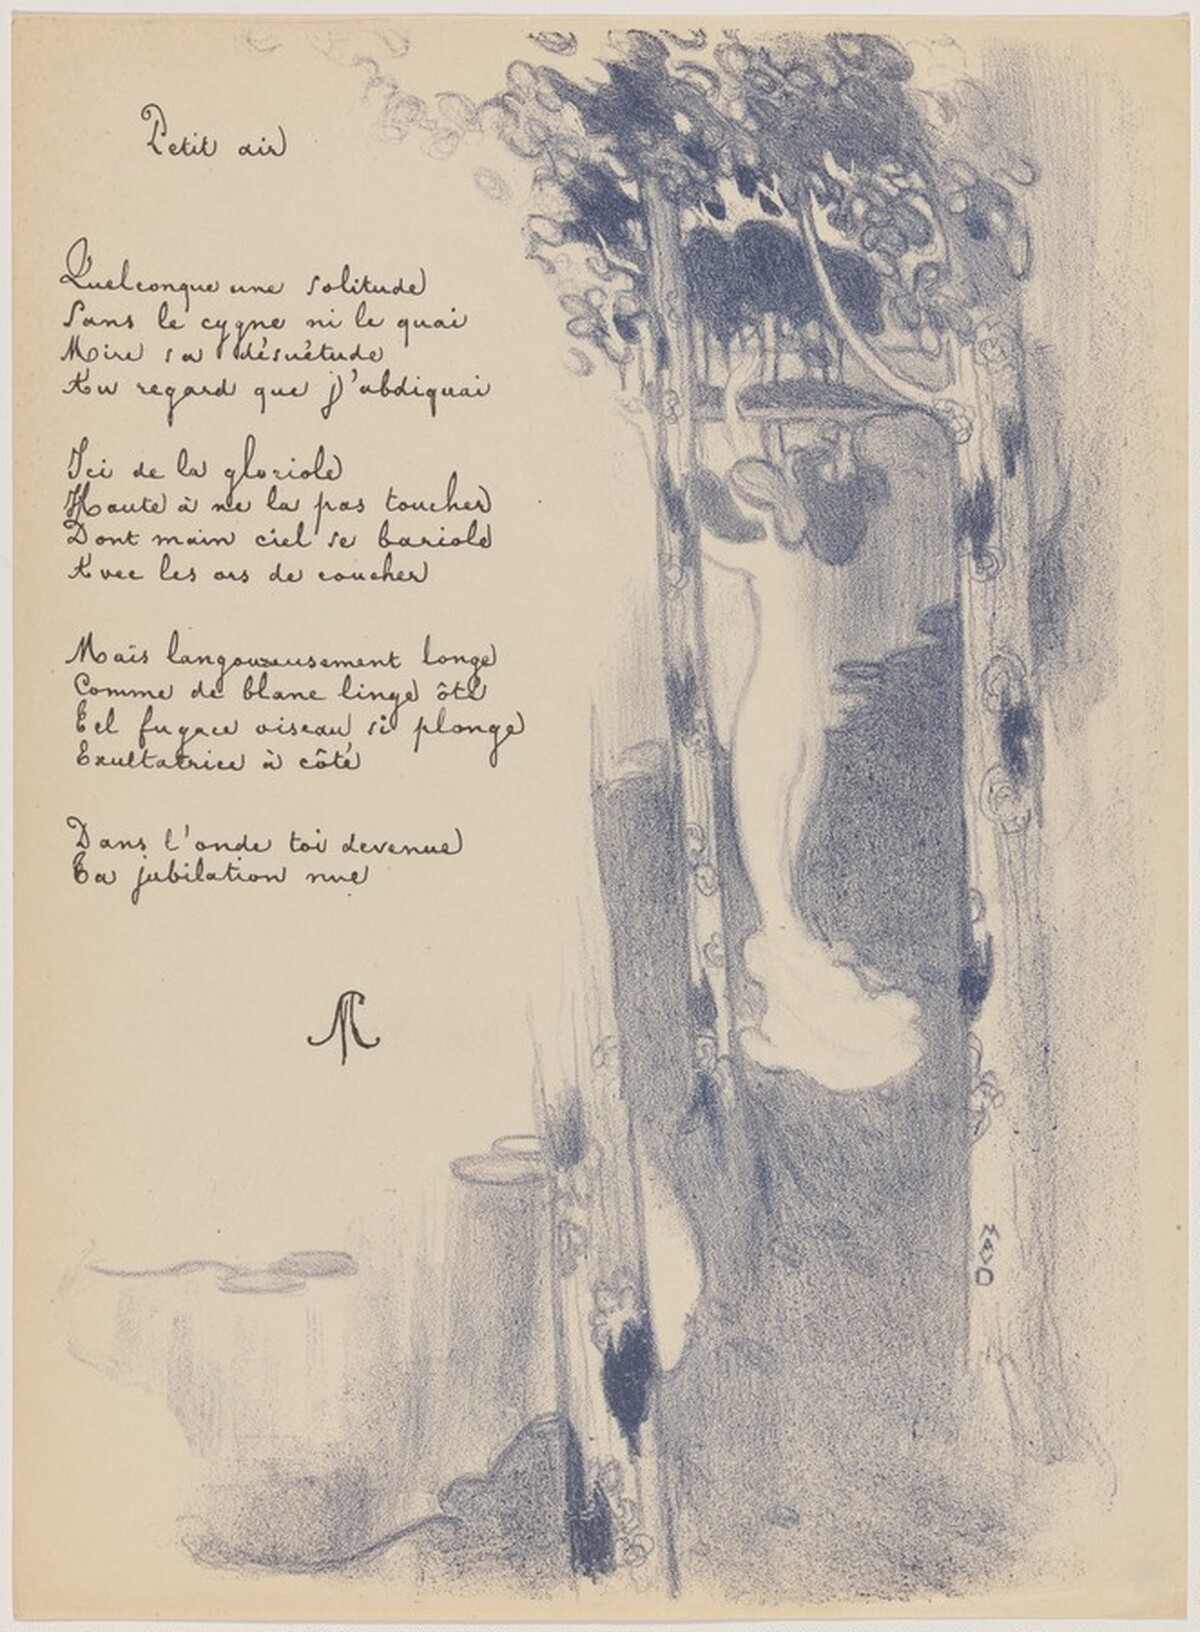 Petit air
Quelconque une solitude
Sans le cygne ni le quai
Mire sa désuétude
Au regard que j'abdiquai
Ici de la gloriole
Haute à ne la pas toucher
Dont main ciel se bariole
Avec les ors de coucher
Mais langoureusement longe
Comme de blanc linge ôté
Tel fugace oiseau si plonge
Exultatrice à côté
Dans l'onde toi devenue
Ta jubilation nue
M
MAVD